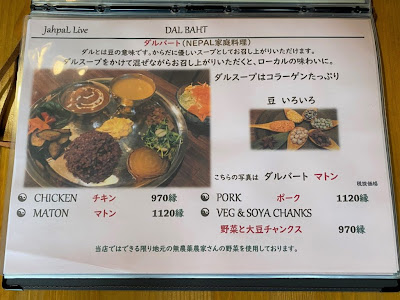 JahpaL Live
DAL BAHT
ダルバート(NEPAL家庭料理)
ダルとは豆の意味です。からだに優しいスープとしてお召し上がりいただけます。
ダルスープをかけて混ぜながらお召し上がりいただくと、ローカルの味わいに。
ダルスープはコラーゲンたっぷり
豆 いろいろ
こちらの写真は ダルバート マトン
税抜価格
CHICKEN チキン 970縁
MATON マトン 1120縁
PORK ポーク 1120縁
VEG & SOYA CHANKS
野菜と大豆チャンクス 970縁
当店ではできる限り地元の無農薬農家さんの野菜を使用しております。